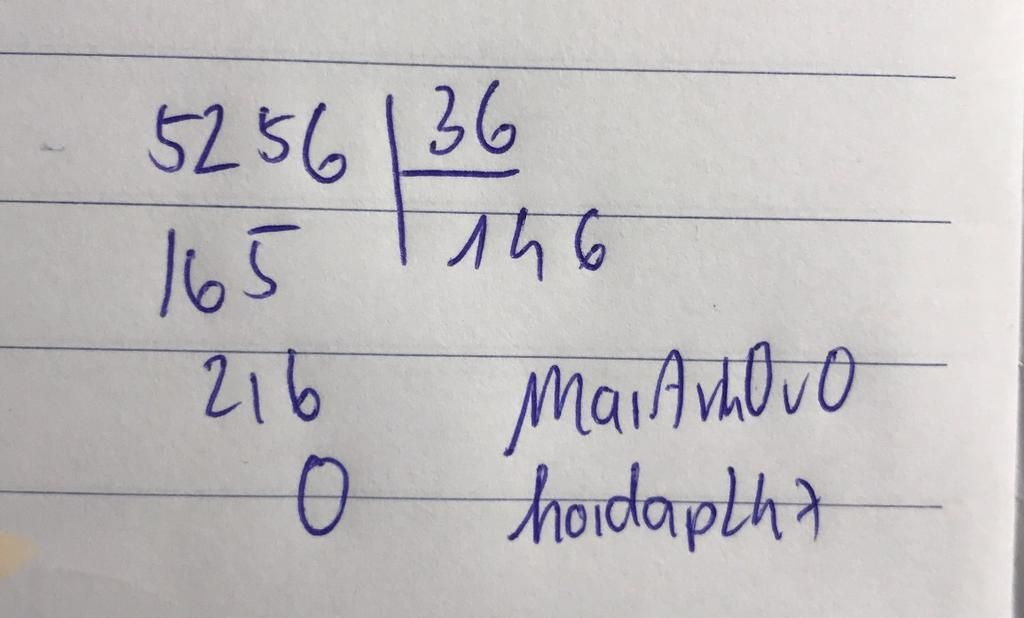 5256 36
165 146
216 MaiAnhOvO
0 hoidap247